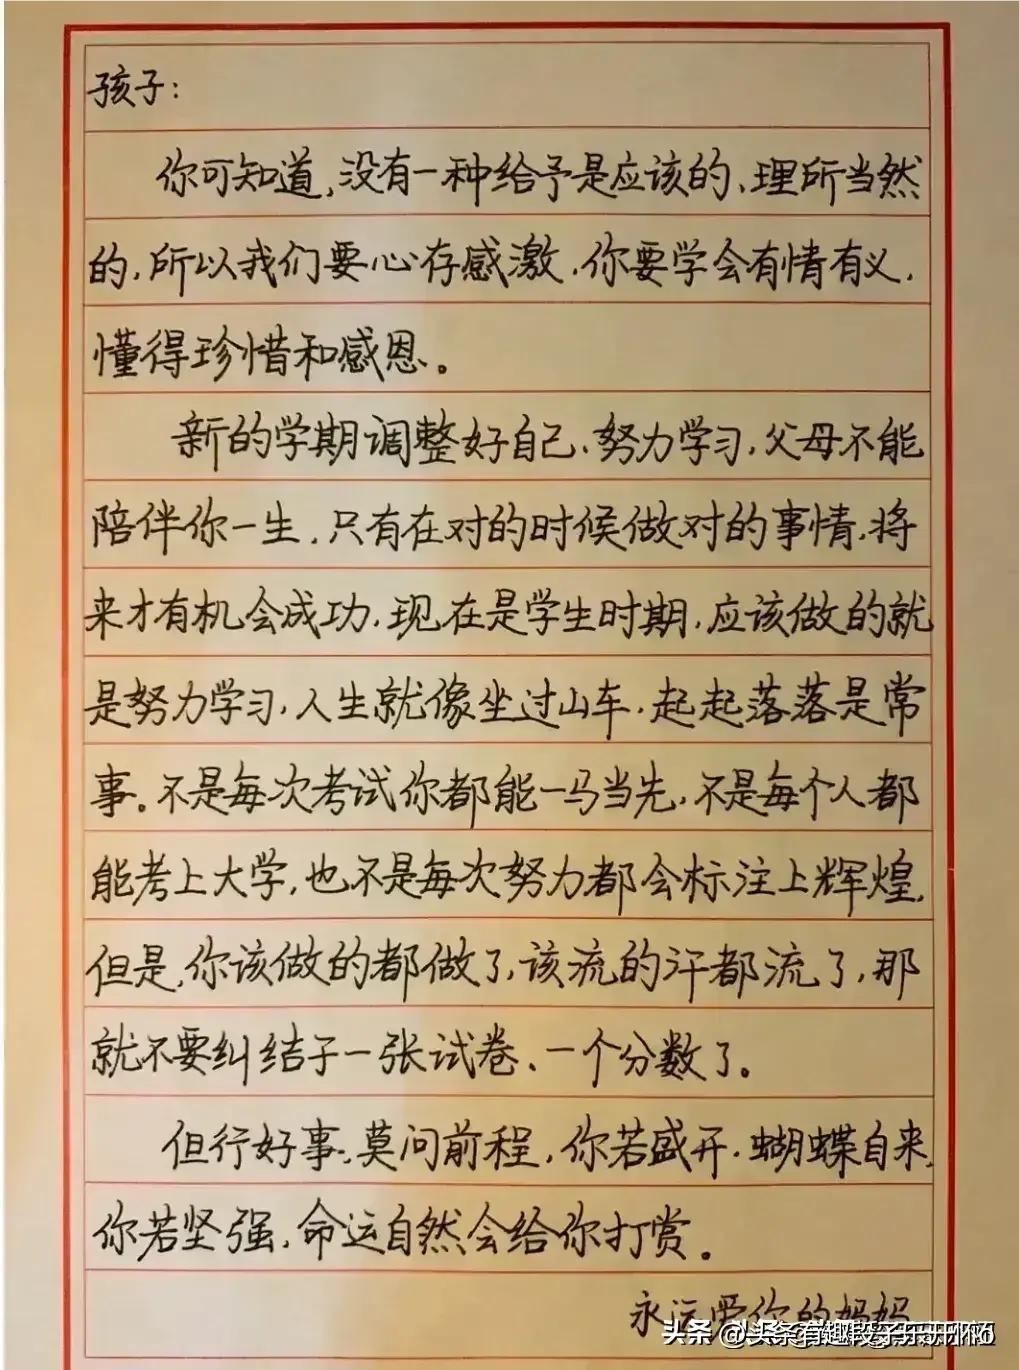 孩子：
你可知道,没有一种给予是应该的、理所当然
的,所以我们要心存感激,你要学会有情有义,
懂得珍惜和感恩。
新的学期调整好自己、努力学习,父母不能
陪伴你一生,只有在对的时候做对的事情,将
来才有机会成功,现在是学生时期,应该做的就
是努力学习,人生就像坐过山车,起起落落是常
事。不是每次考试你都能一马当先,不是每个人都
能考上大学,也不是每次努力都会标注上辉煌,
但是,你该做的都做了,该流的汗都流了,那
就不要纠结于一张试卷、一个分数了。
但行好事,莫问前程,你若盛开,蝴蝶自来,
你若坚强,命运自然会给你打赏。
永远爱你的妈妈
头条 @头条有趣段子